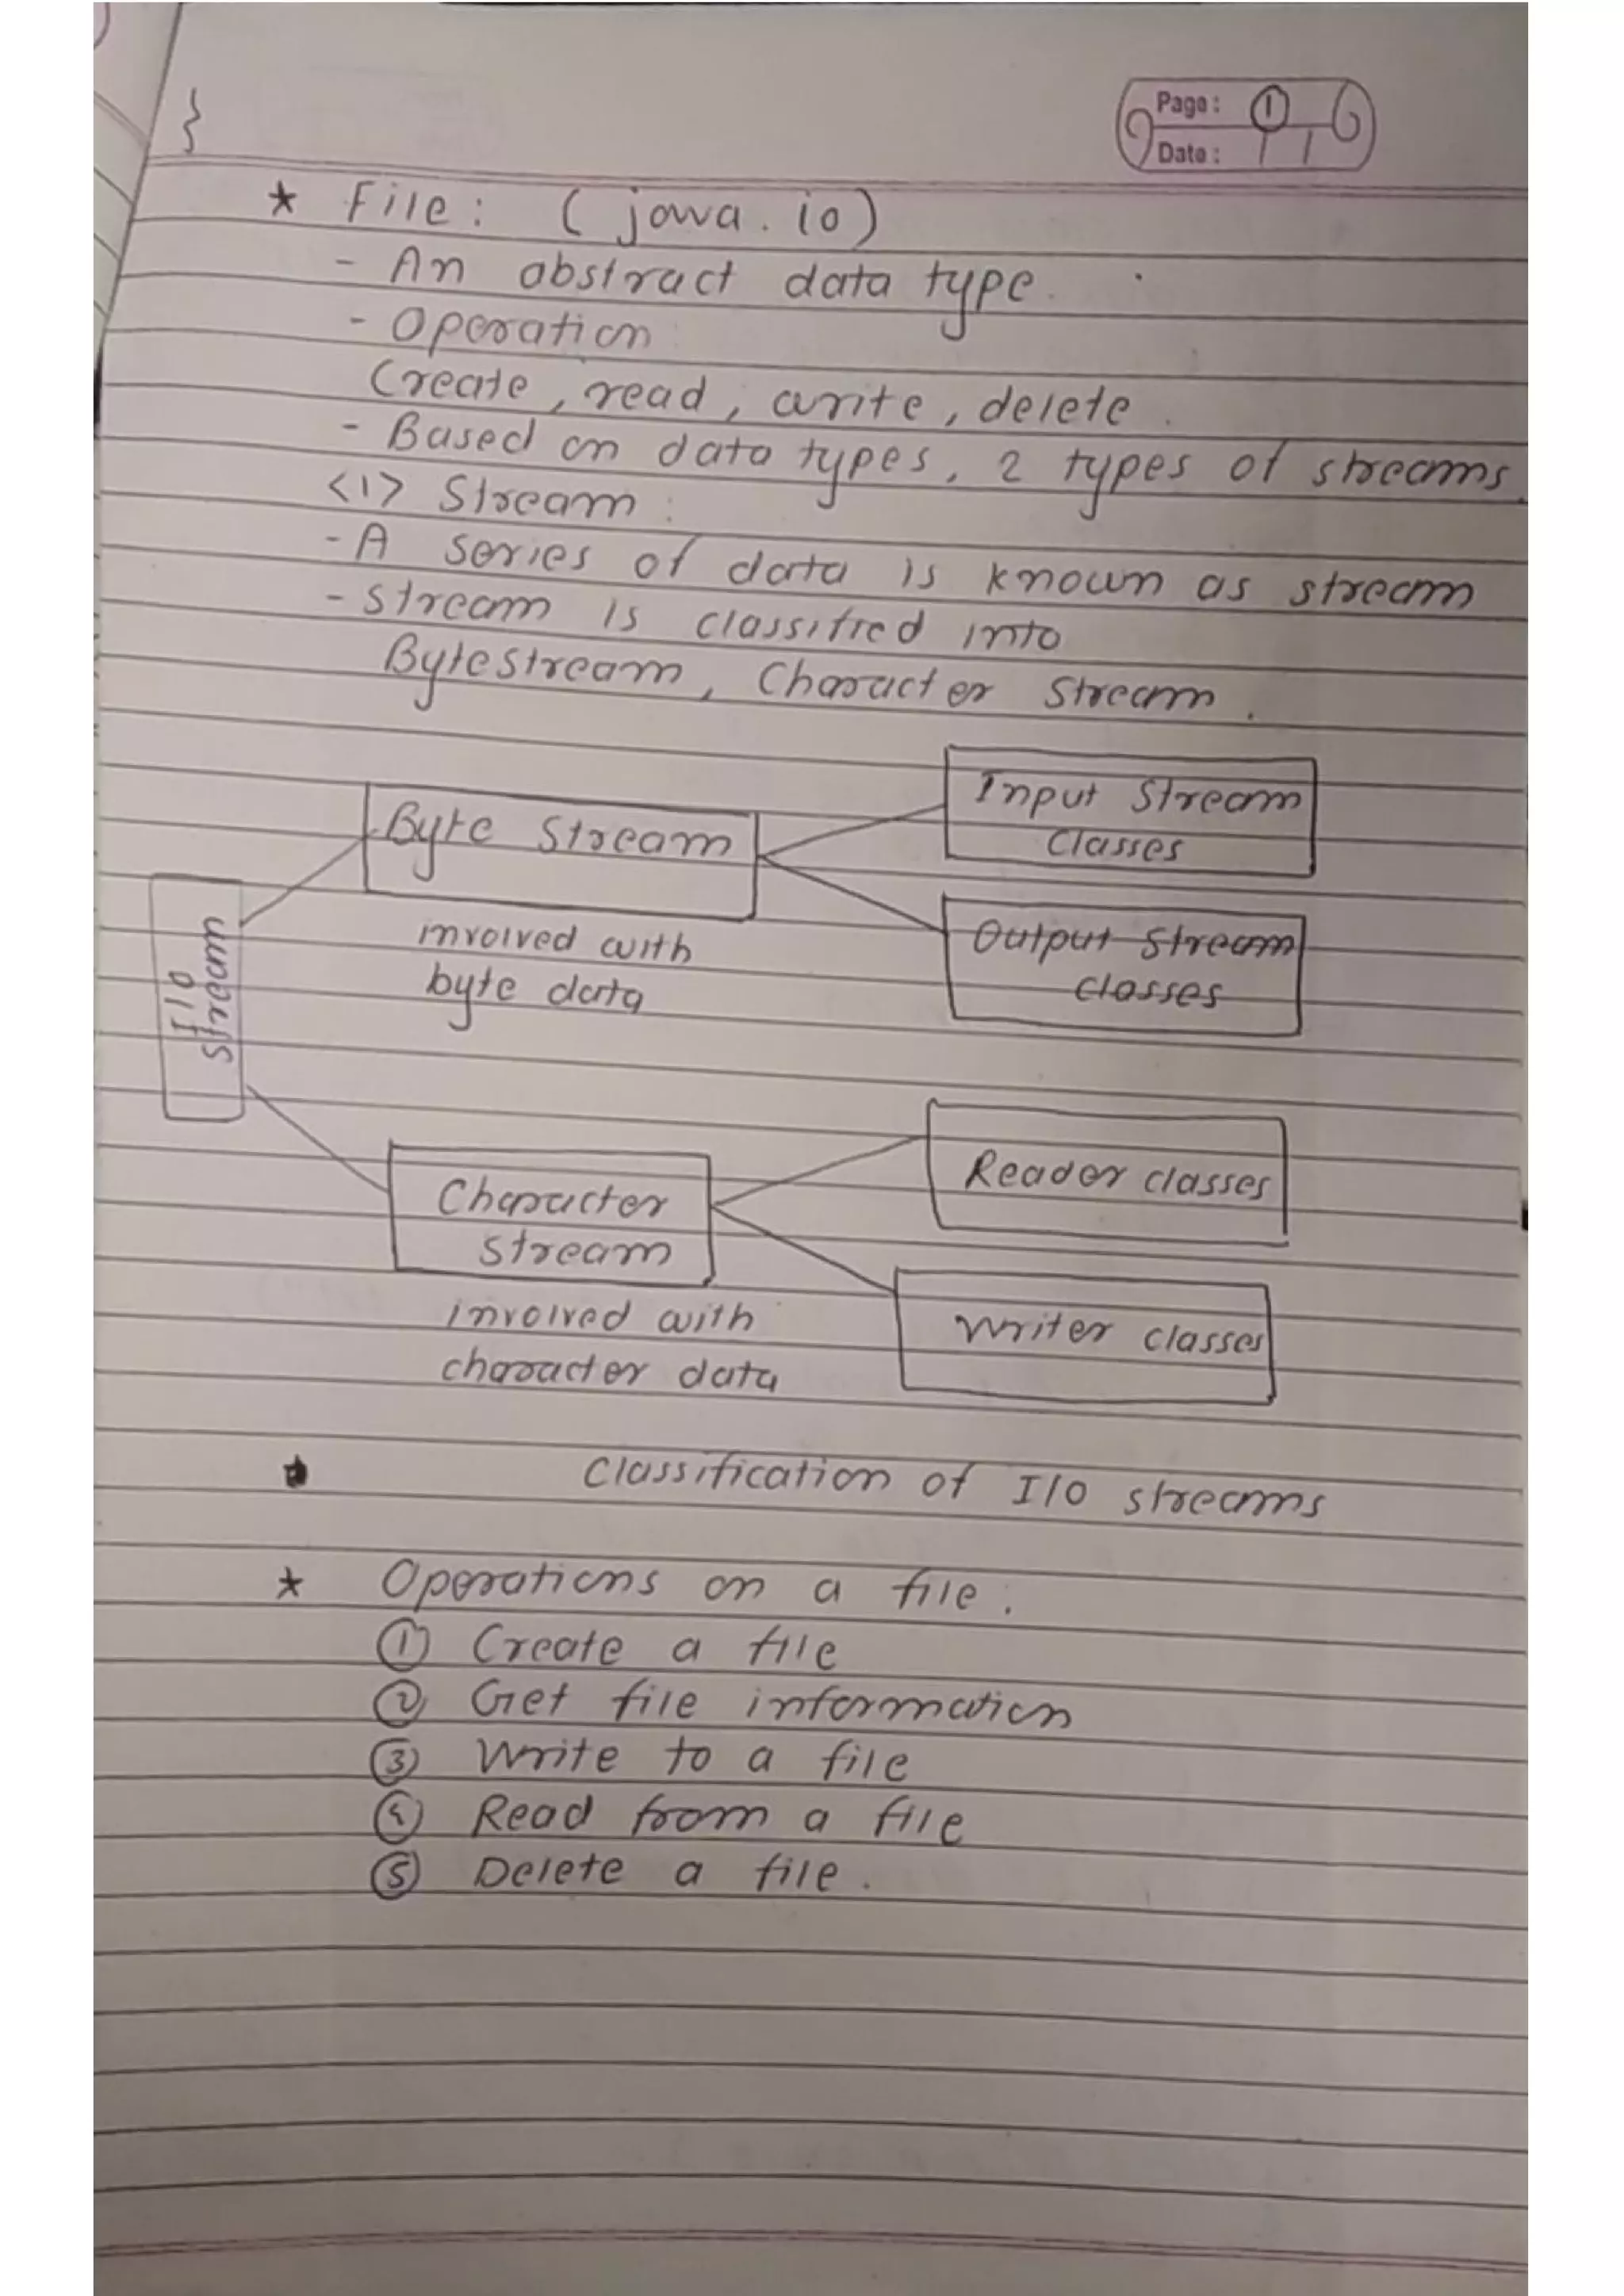 }
Page: 1
Date: / /
* File: (java.io)
- An abstract data type.
- Operation:
Create, read, write, delete.
- Based on data types, 2 types of streams.
<1> Stream:
- A series of data is known as stream
- Stream is classified into
Bytestream, Character Stream.
Input Stream
Classes
Byte Stream
Output Stream
classes
involved with
byte data
I/O
Stream
Reader classes
Character
Stream
Writer classes
involved with
character data
Classification of I/O streams
* Operations on a file:
① Create a file
② Get file information
③ Write to a file
④ Read from a file
⑤ Delete a file.